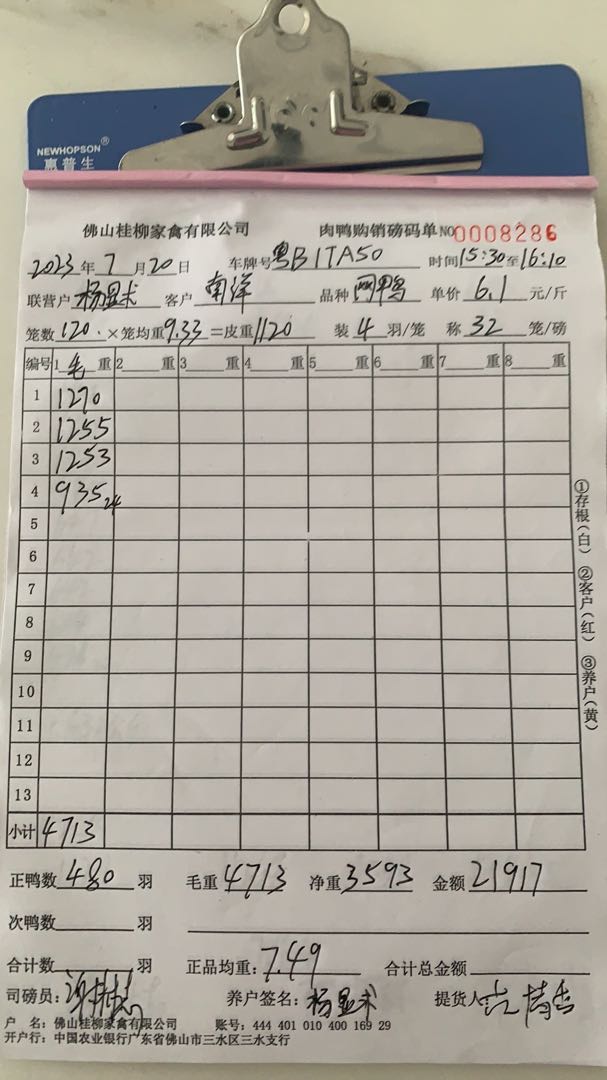 NEWHOPSON®
惠普生
佛山桂柳家禽有限公司 肉鸭购销磅码单 NO 0008286
2023年7月20日 车牌号粤B1TA50 时间15:30至16:10
联营户杨显术 客户南洋 品种网鸭 单价6.1元/斤
笼数120.×笼均重9.33=皮重1120 装4羽/笼 称32笼/磅
编号 1毛重 2重 3重 4重 5重 6重 7重 8重
1 1270
2 1255
3 1253
4 935 24
5
6
7
8
9
10
11
12
13
小计 4713
①存根(白) ②客户(红) ③养户(黄)
正鸭数480羽 毛重4713 净重3593 金额21917
次鸭数羽
合计数羽 正品均重:7.49 合计总金额
司磅员: 养户签名:杨显术 提货人
户 名:佛山桂柳家禽有限公司 账号:444 401 010 400 169 29
开户行:中国农业银行广东省佛山市三水区三水支行